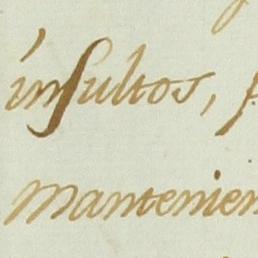 insultos,
mantenien